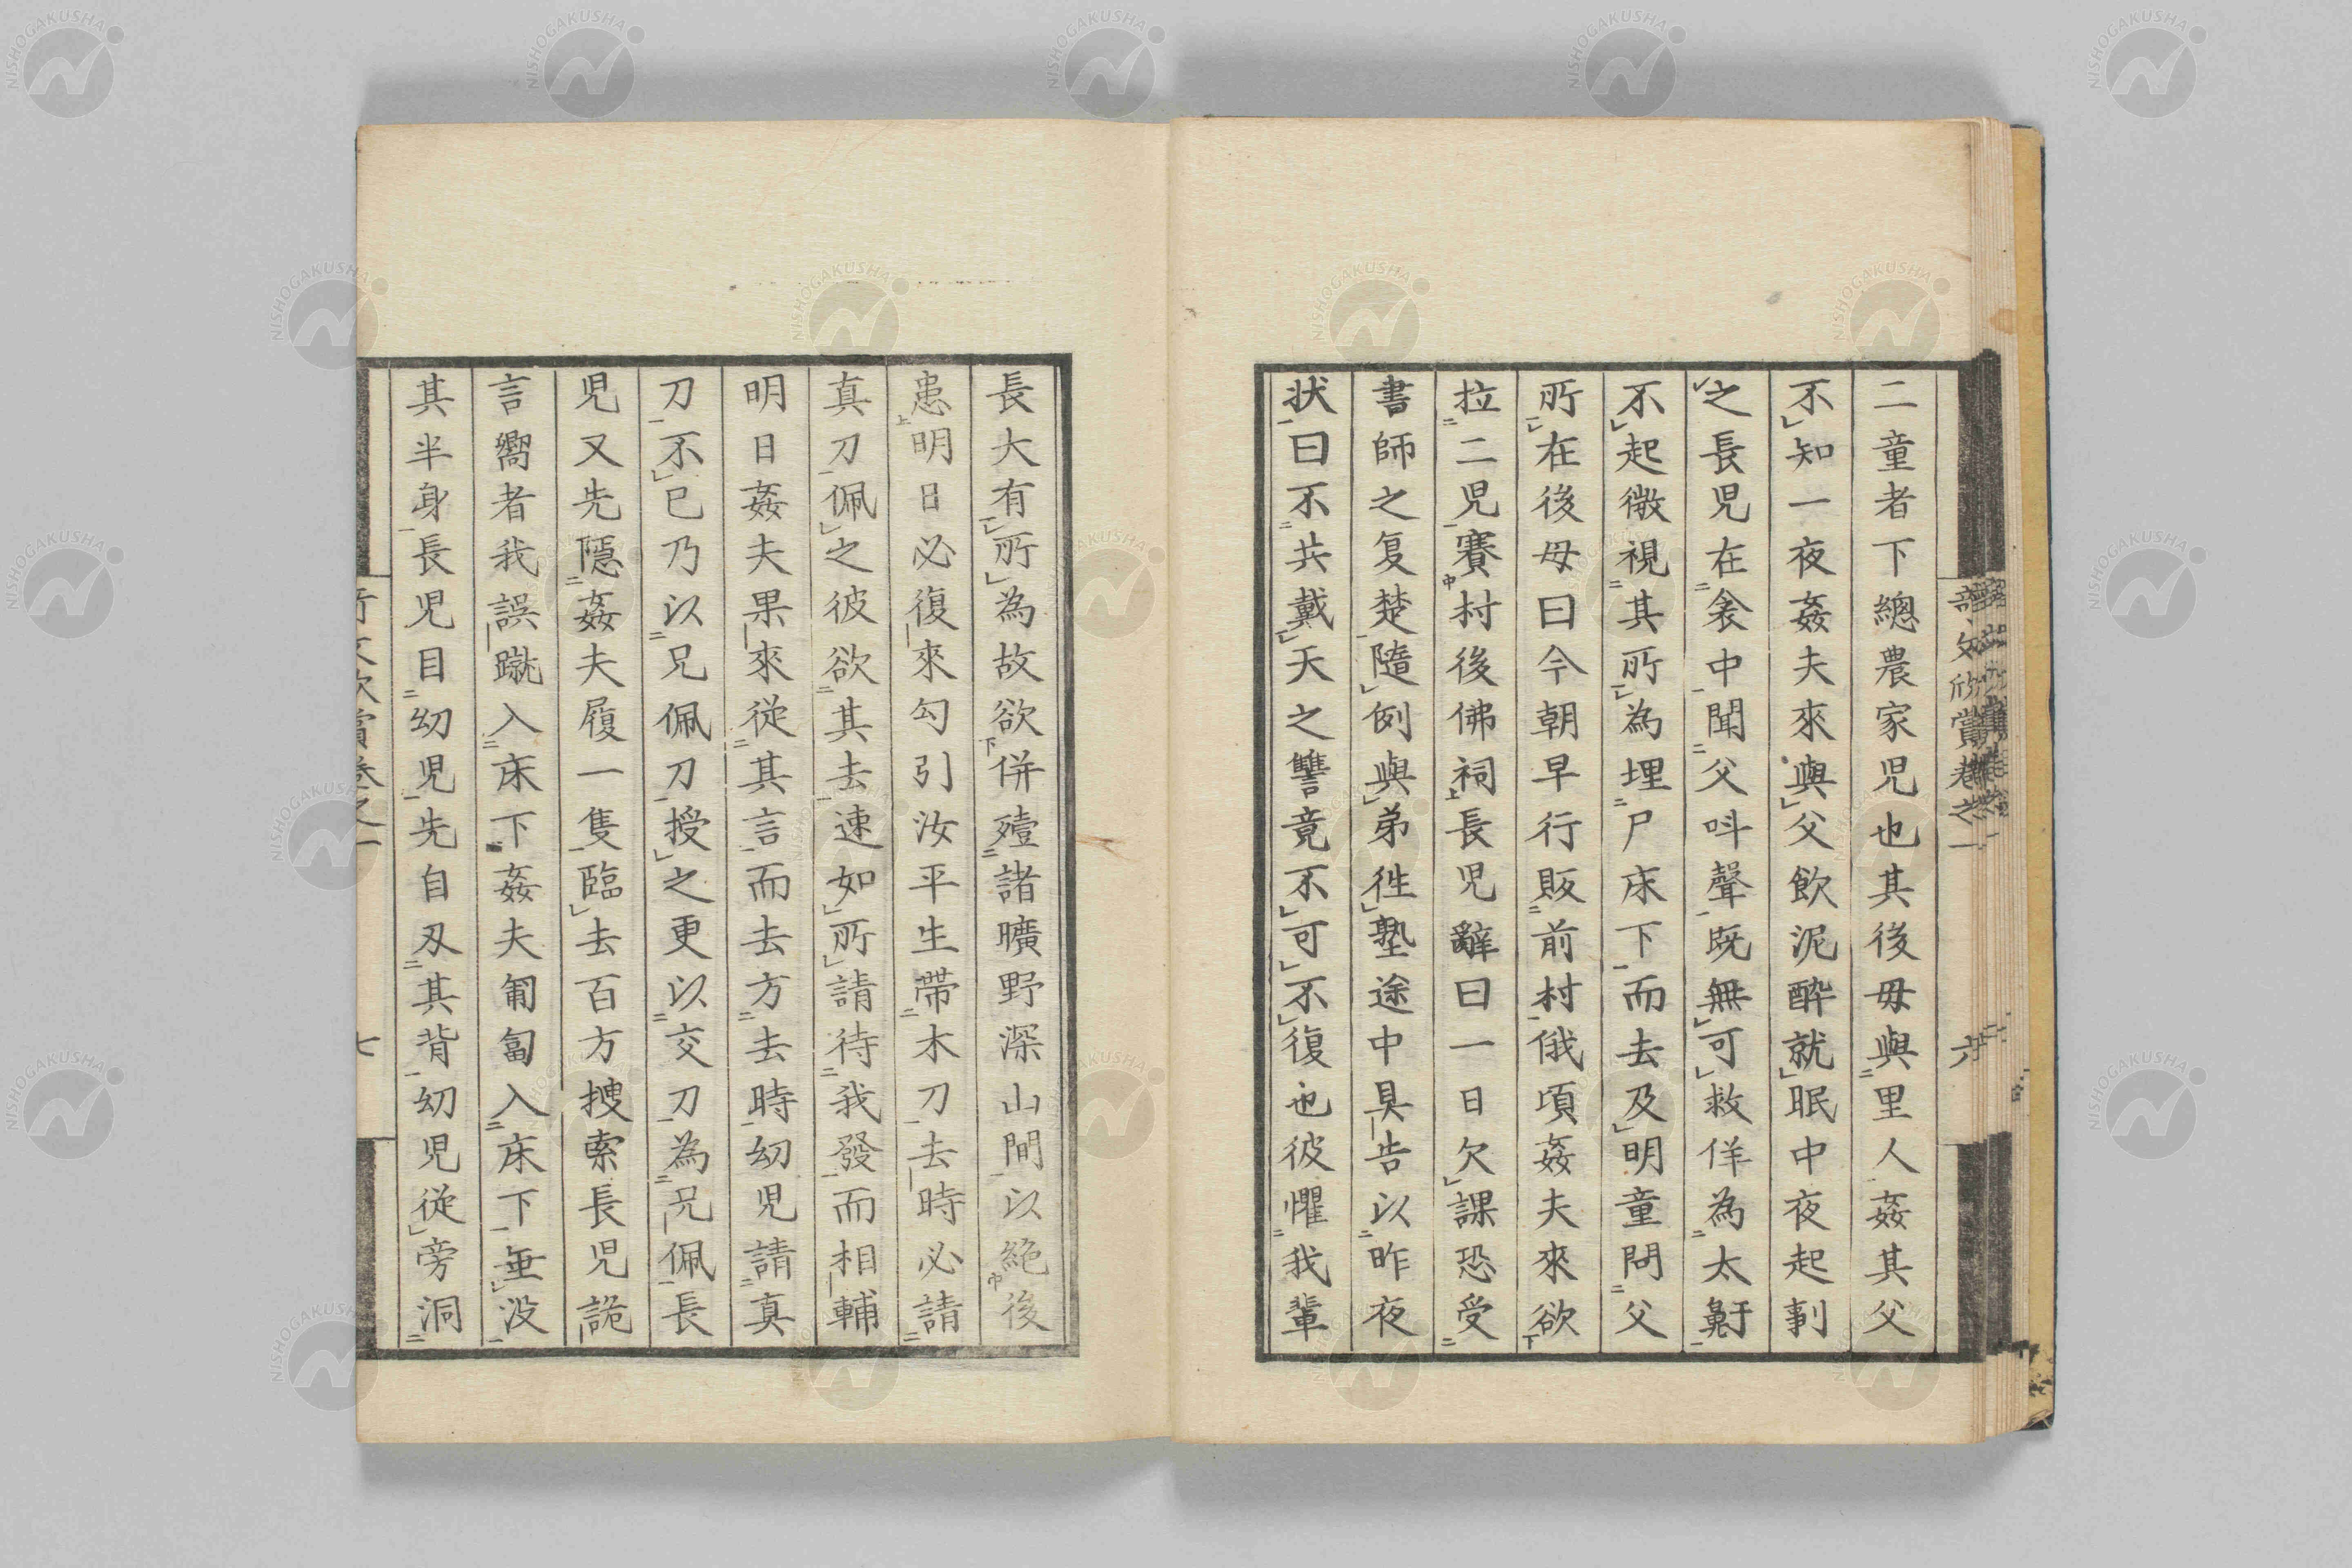 二童者下總農家児也其後毋與里人姦其父
不知一夜姦夫來與父飲泥酔就眠中夜起剚
之長児在衾中聞父呌聲既無可救佯為太鼾
不起微視其所為埋尸床下而去及明童問父
所在後母曰今朝早行販前村俄頃姦夫來欲
拉二児賽村後佛祠長児辭曰一日欠課恐受
書師之复楚隨例與弟徃塾途中具告以昨夜
状曰不共戴天之讐竟不可不復也彼懼我輩
長大有所為故欲併殪諸曠野深山間以絶後
患明日必復來勾引汝平生帶木刀去時必請
真刀佩之彼欲其去速如所請待我發而相輔
明日姦夫果來從其言而去方去時幼児請真
刀不已乃以兄佩刀授之更以交刀為兄佩長
児又先隱姦夫履一隻臨去百方捜索長児詭
言嚮者我誤蹴入床下姦夫匍匐入床下垂没
其半身長児目幼児先自刄其背幼児從旁洞
奇文欣賞卷之一 六
七
NISHOGAKUSHA